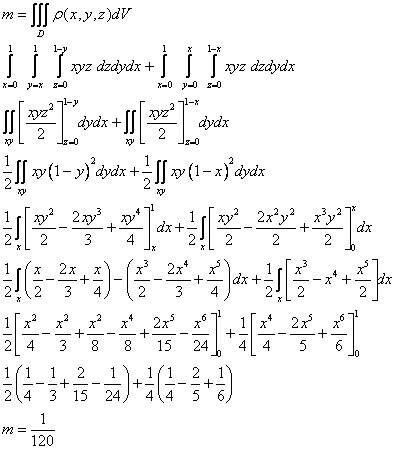 m = ∭_D ρ(x,y,z)dV
∫_{x=0}^{1} ∫_{y=x}^{1} ∫_{z=0}^{1-y} xyz dzdydx + ∫_{x=0}^{1} ∫_{y=0}^{x} ∫_{z=0}^{1-x} xyz dzdydx
∬_{xy} [xyz²/2]_{z=0}^{1-y} dydx + ∬_{xy} [xyz²/2]_{z=0}^{1-x} dydx
1/2 ∬_{xy} xy(1-y)² dydx + 1/2 ∬_{xy} xy(1-x)² dydx
1/2 ∫_x [xy²/2 - 2xy³/3 + xy⁴/4]_x^1 dx + 1/2 ∫_x [xy²/2 - 2x²y²/2 + x³y²/2]_0^x dx
1/2 ∫_x (x/2 - 2x/3 + x/4) - (x³/2 - 2x⁴/3 + x⁵/4) dx + 1/2 ∫_x [x³/2 - x⁴ + x⁵/2] dx
1/2 [x²/4 - x²/3 + x²/8 - x⁴/8 + 2x⁵/15 - x⁶/24]_0^1 + 1/4 [x⁴/4 - 2x⁵/5 + x⁶/6]_0^1
1/2 (1/4 - 1/3 + 2/15 - 1/24) + 1/4 (1/4 - 2/5 + 1/6)
m = 1/120